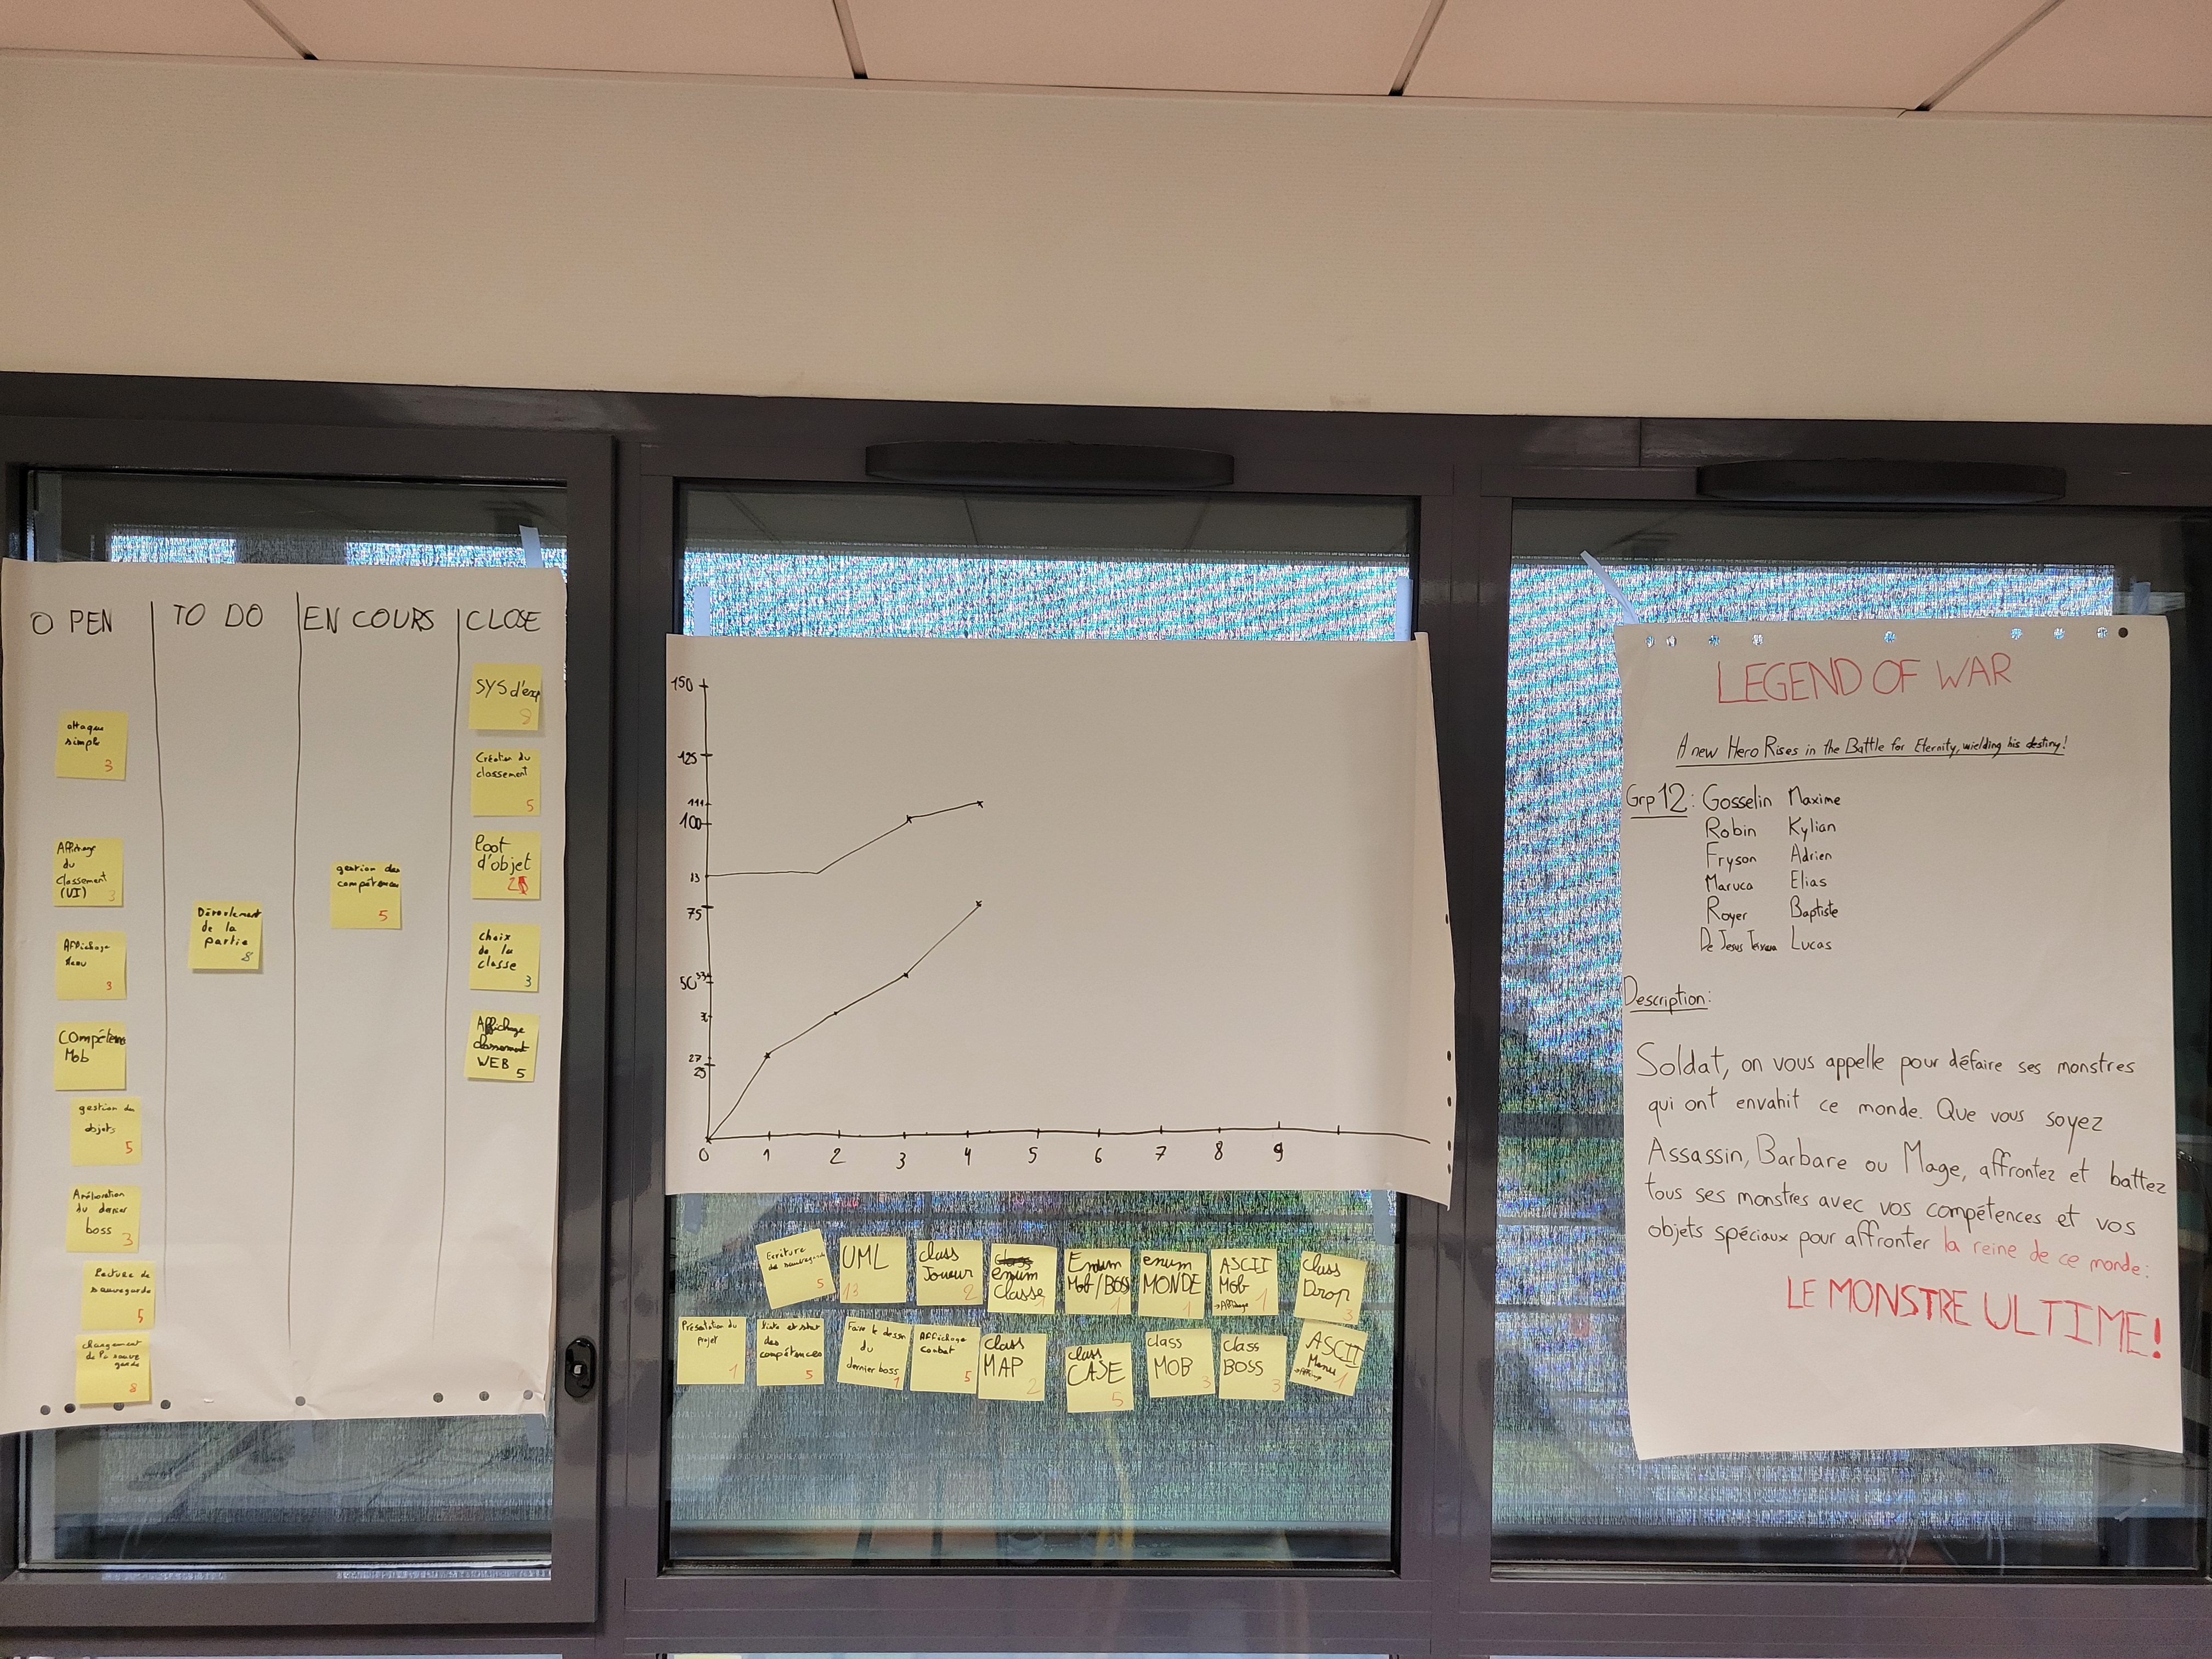 O PEN
TO DO
EN COURS
CLOSE
attaque
simple
3
Affichage
du
classement
(UI)
3
Affichage
Menu
3
Compétence
Mob
gestion des
objets
5
Amélioration
du dernier
boss
3
Lecture de
sauvegarde
5
changement
de la sauve
garde
8
Déroulement
de la
partie
8
gestion des
compétences
5
SYS d'exp
8
Création du
classement
5
loot
d'objet
2
choix
de la
classe
3
Affichage
classement
WEB 5
150
125
111
100
83
75
53
50
27
25
0 1 2 3 4 5 6 7 8 9
Ecriture
de sauvegarde
5
UML
13
class
Joueur
2
enum
Classe
1
Enum
Mob/BOSS
1
enum
MONDE
1
ASCII
Mob
→Affichage
1
class
Drop
3
Présentation du
projet
1
liste et stat
des
compétences
5
Faire le dessin
du
dernier boss
1
Affichage
combat
5
class
MAP
2
class
CASE
5
class
MOB
3
class
BOSS
3
ASCII
Menu
1
LEGEND OF WAR
A new Hero Rises in the Battle for Eternity, wielding his destiny!
Grp 12 : Gosselin Maxime
Robin Kylian
Fryson Adrien
Maruca Elias
Royer Baptiste
De Jesus Lucas
Description:
Soldat, on vous appelle pour défaire ses monstres
qui ont envahit ce monde. Que vous soyez
Assassin, Barbare ou Mage, affrontez et battez
tous ses monstres avec vos compétences et vos
objets spéciaux pour affronter la reine de ce monde:
LE MONSTRE ULTIME!